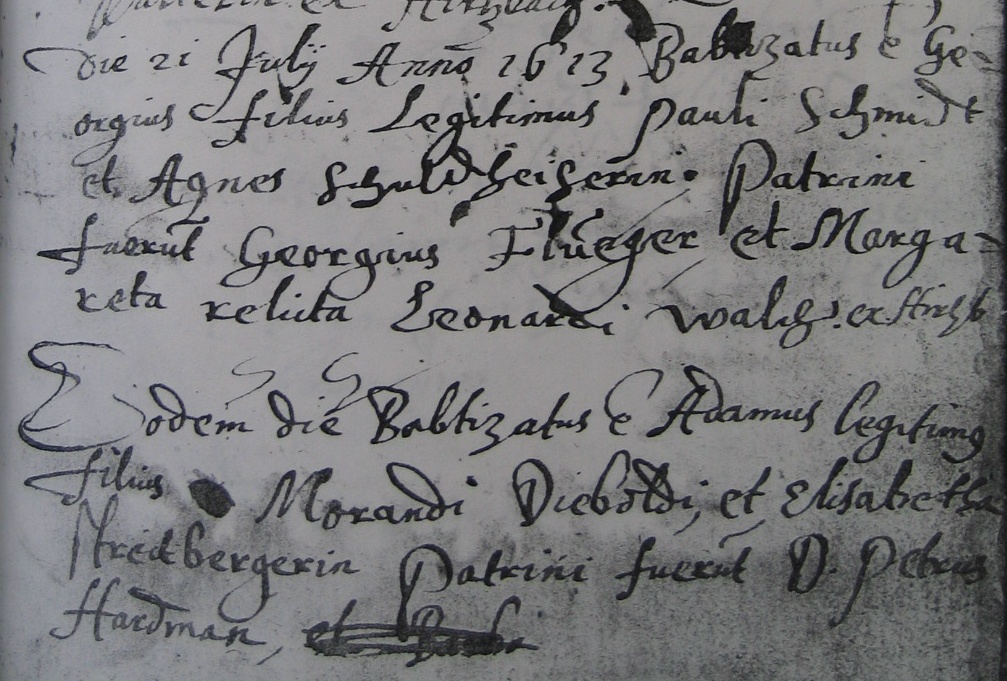 et Hirtzbach.
Die 21 Julij Anno 1613 Babtizatus ẽ Ge=
orgius filius Legitimus Pauli Schmidt
et Agnes Schuldheiserin. Patrini
fuerūt Georgius Flüeger et Marga=
reta relicta Leonardi Walch. ex Hirtzb
Eodem die Babtizatus ẽ Adamus legitimus
filius Morandi Dieboldi, et Elisabetha
Streitbergerin Patrini fuerūt D. Petrus
Hardman, et Barba